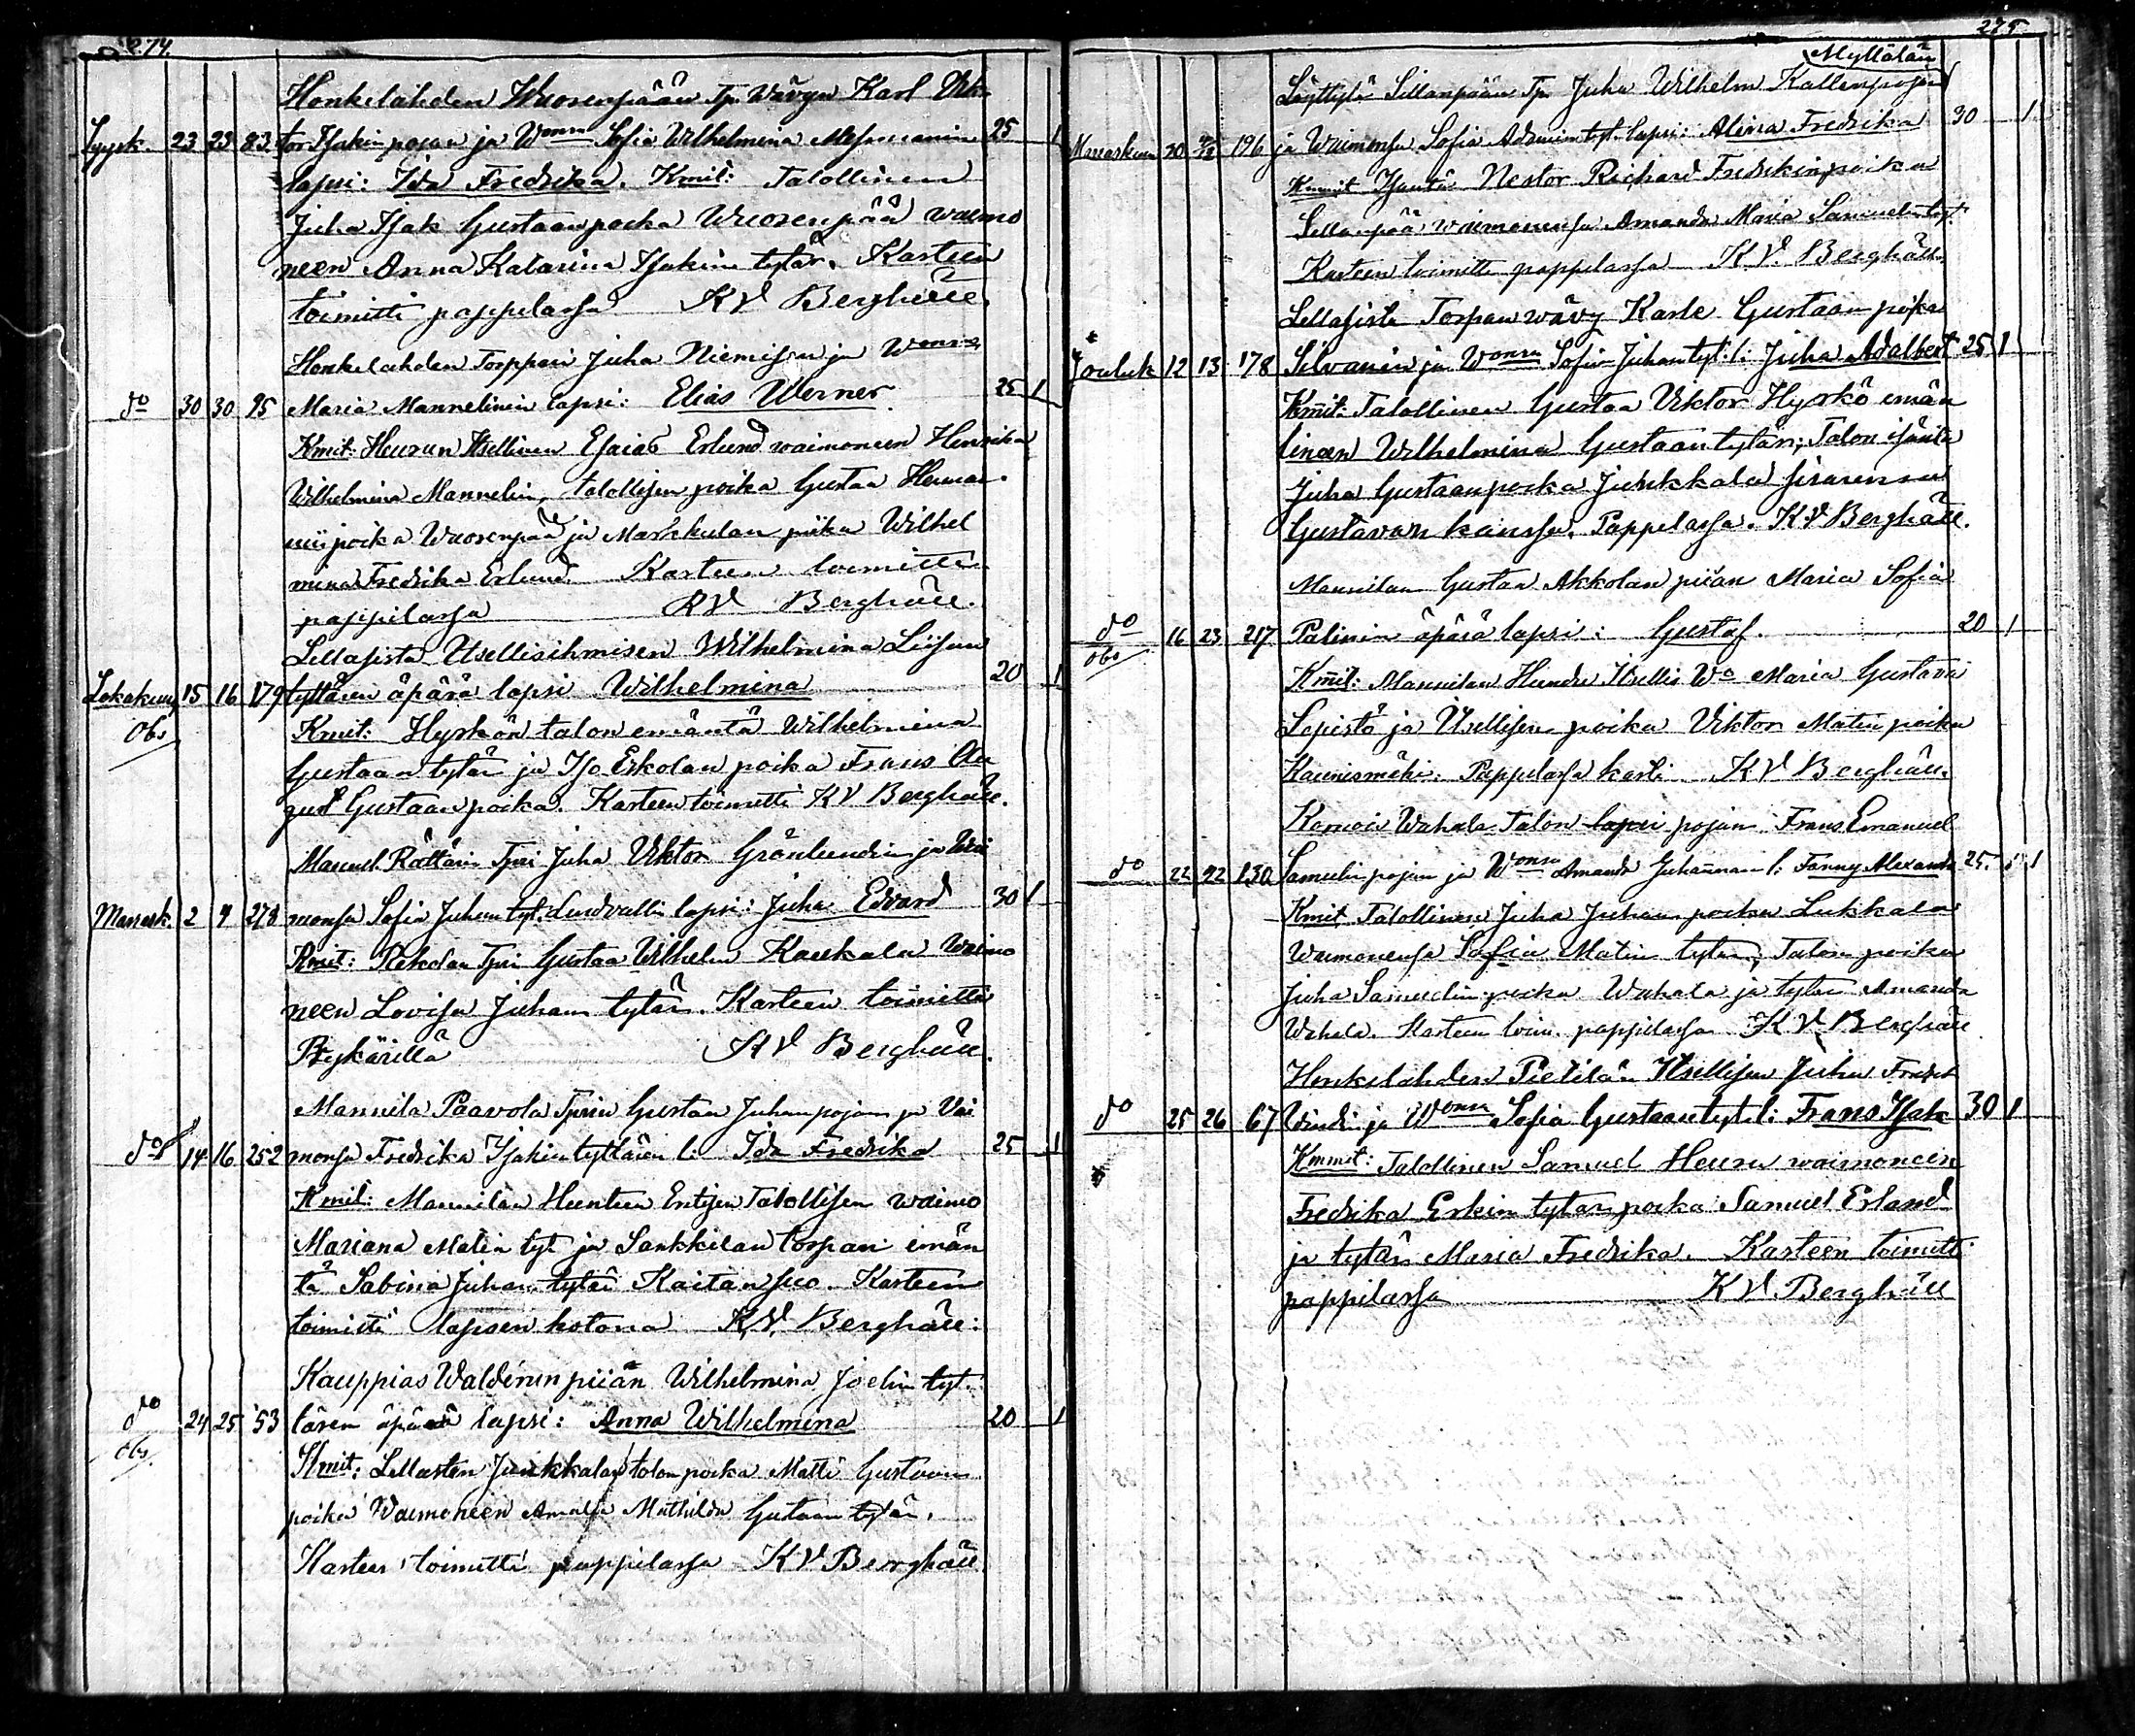 274.
Honkelahden Wuosenpään Tp. Wävyn Karl Vik-
Syysk. 23 23 83 tor Isakin pojan ja Wonsa Sofia Wilhelmina Messmanin 25 1
lapsi: Ida Fredrika. Kmit: Talollinen
Juha Isak Gustaanpoika Wuosenpää waimo
neen Anna Katarina Isakin tytär. Kasteen
toimitti pappilassa KV Berghäll.
Honkelahden Torppari Juha Niemisen ja Wonsa
do 30 30 95 Maria Mannelinin lapsi: Elias Werner 25 1
Kmit: Heurun Itsellinen Esaias Erlund waimoneen Henrika
Wilhelmina Mannelin, talollisen poika Gustaa Herman-
nipoika Wuosenpää ja Markkulan piika Wilhel
mina Fredrika Erlund. Kasteen toimitti
pappilassa KV Berghäll.
Lellaista Itsellisihmisen Wilhelmina Liisan
Lokakuu 15 16 179 tyttären äpärä lapsi Wilhelmina 20 1
Obs
Kmit: Hyrkön talon emäntä Wilhelmina
Gustaan tytär ja Iso Eskolan poika Frans Au
gust Gustaanpoika. Kasteen toimitti KV Berghäll.
Rättäri Tpri Juha Viktor Grönlundin ja Wai
Marrask. 2 9 278 monsa Sofia Juhan tyt. Lundvallin lapsi: Juha Edvard 30 1
Kmit: Tpri Gustaa Wilhelm Kaukala Waimo
neen Lovisa Juhan tytär. Kasteen toimitti
KV Berghäll.
Mannila Paavola Tprin Gustaa Juhanpojan ja Vai
do 14 16 252 monsa Fredrika Isakin tyttären l: Ida Fredrika 25 1
Kmit: Mannilan Huntun Entisen Talollisen waimo
Mariana Matin tyt ja Sankkilan torpan emän
tä Sabina Juhan tytär Kaitansuo. Kasteen
toimitti lapsen kotona KV. Berghäll:
Kauppias piian Wilhelmina Joelin tyt-
do 24 25 53 tären äpärä lapsi: Anna Wilhelmina 20 1
obs.
Kmit: Lellaisten Junkkalan talon poika Matti Gustaan
poika Waimoneen Amalia Mathilda Gustaan tytär.
Kasteen toimitti pappilassa KV Berghäll.
275
Myllölän
Löyttylä Sillanpään Tp. Juha Wilhelm Kallenpojan
Marraskuu 30 196 ja Waimonsa Sofia Adamin tyt. lapsi: Alina Fredrika 30 1
Kummit Isäntä Nestor Richard Fredrikinpoika
Sillanpää waimonensa Amanda Maria Samuelin tyt.
Kasteen toimitti pappilassa KV. Berghäll.
Lellaista Torpan wävy Karle Gustaan poika
Jouluk 12 13 178 Silvanin ja Wonsa Sofia Juhan tyt: l: Juha Adalbert 25 1
Kmit: Talollinen Gustaa Viktor Hyrkö emän
tineen Wilhelmina Gustaan tytär; Talon isäntä
Juha Gustaanpoika Junkkala sisarensa
Gustavan kanssa. Pappilassa. KV Berghäll.
Mannilan Gustaa Akkolan piian Maria Sofia
do 16 23 217 Palinin äpärä lapsi: Gustaf. 20 1
obs
Kmit: Mannilan Hundu Itsellis Wo Maria Gustava
Sepistö ja Itsellisen poika Viktor Matin poika
Kaunismäki. Pappilassa kasti KV Berghäll.
Komois Wahala Talon lapsi pojan Frans Emanuel
do 22 22 130 Samulinpojan ja Wonsa Amanda Juhannan l: Fanny Alexandra 25. 1
Kmit. Talollinen Juha Juhan poika Lukkala
Waimonensa Sofia Matin tytär, Talon poika
Juha Samuelin poika Wahala ja tytär Amanda
Wahala. Kasteen toim. pappilassa KV Berghäll
Honkelahden Pietilän Itsellisen Juha Fredrik
do 25 26 67 ja Wonsa Sofia Gustaan tyt. l: Frans Isak 30 1
Kmmit: Talollinen Samuel Heuru waimoneen
Fredrika Erkin tytär, poika Samuel Erland
ja tytär Maria Fredrika. Kasteen toimitti
pappilassa KV. Berghäll